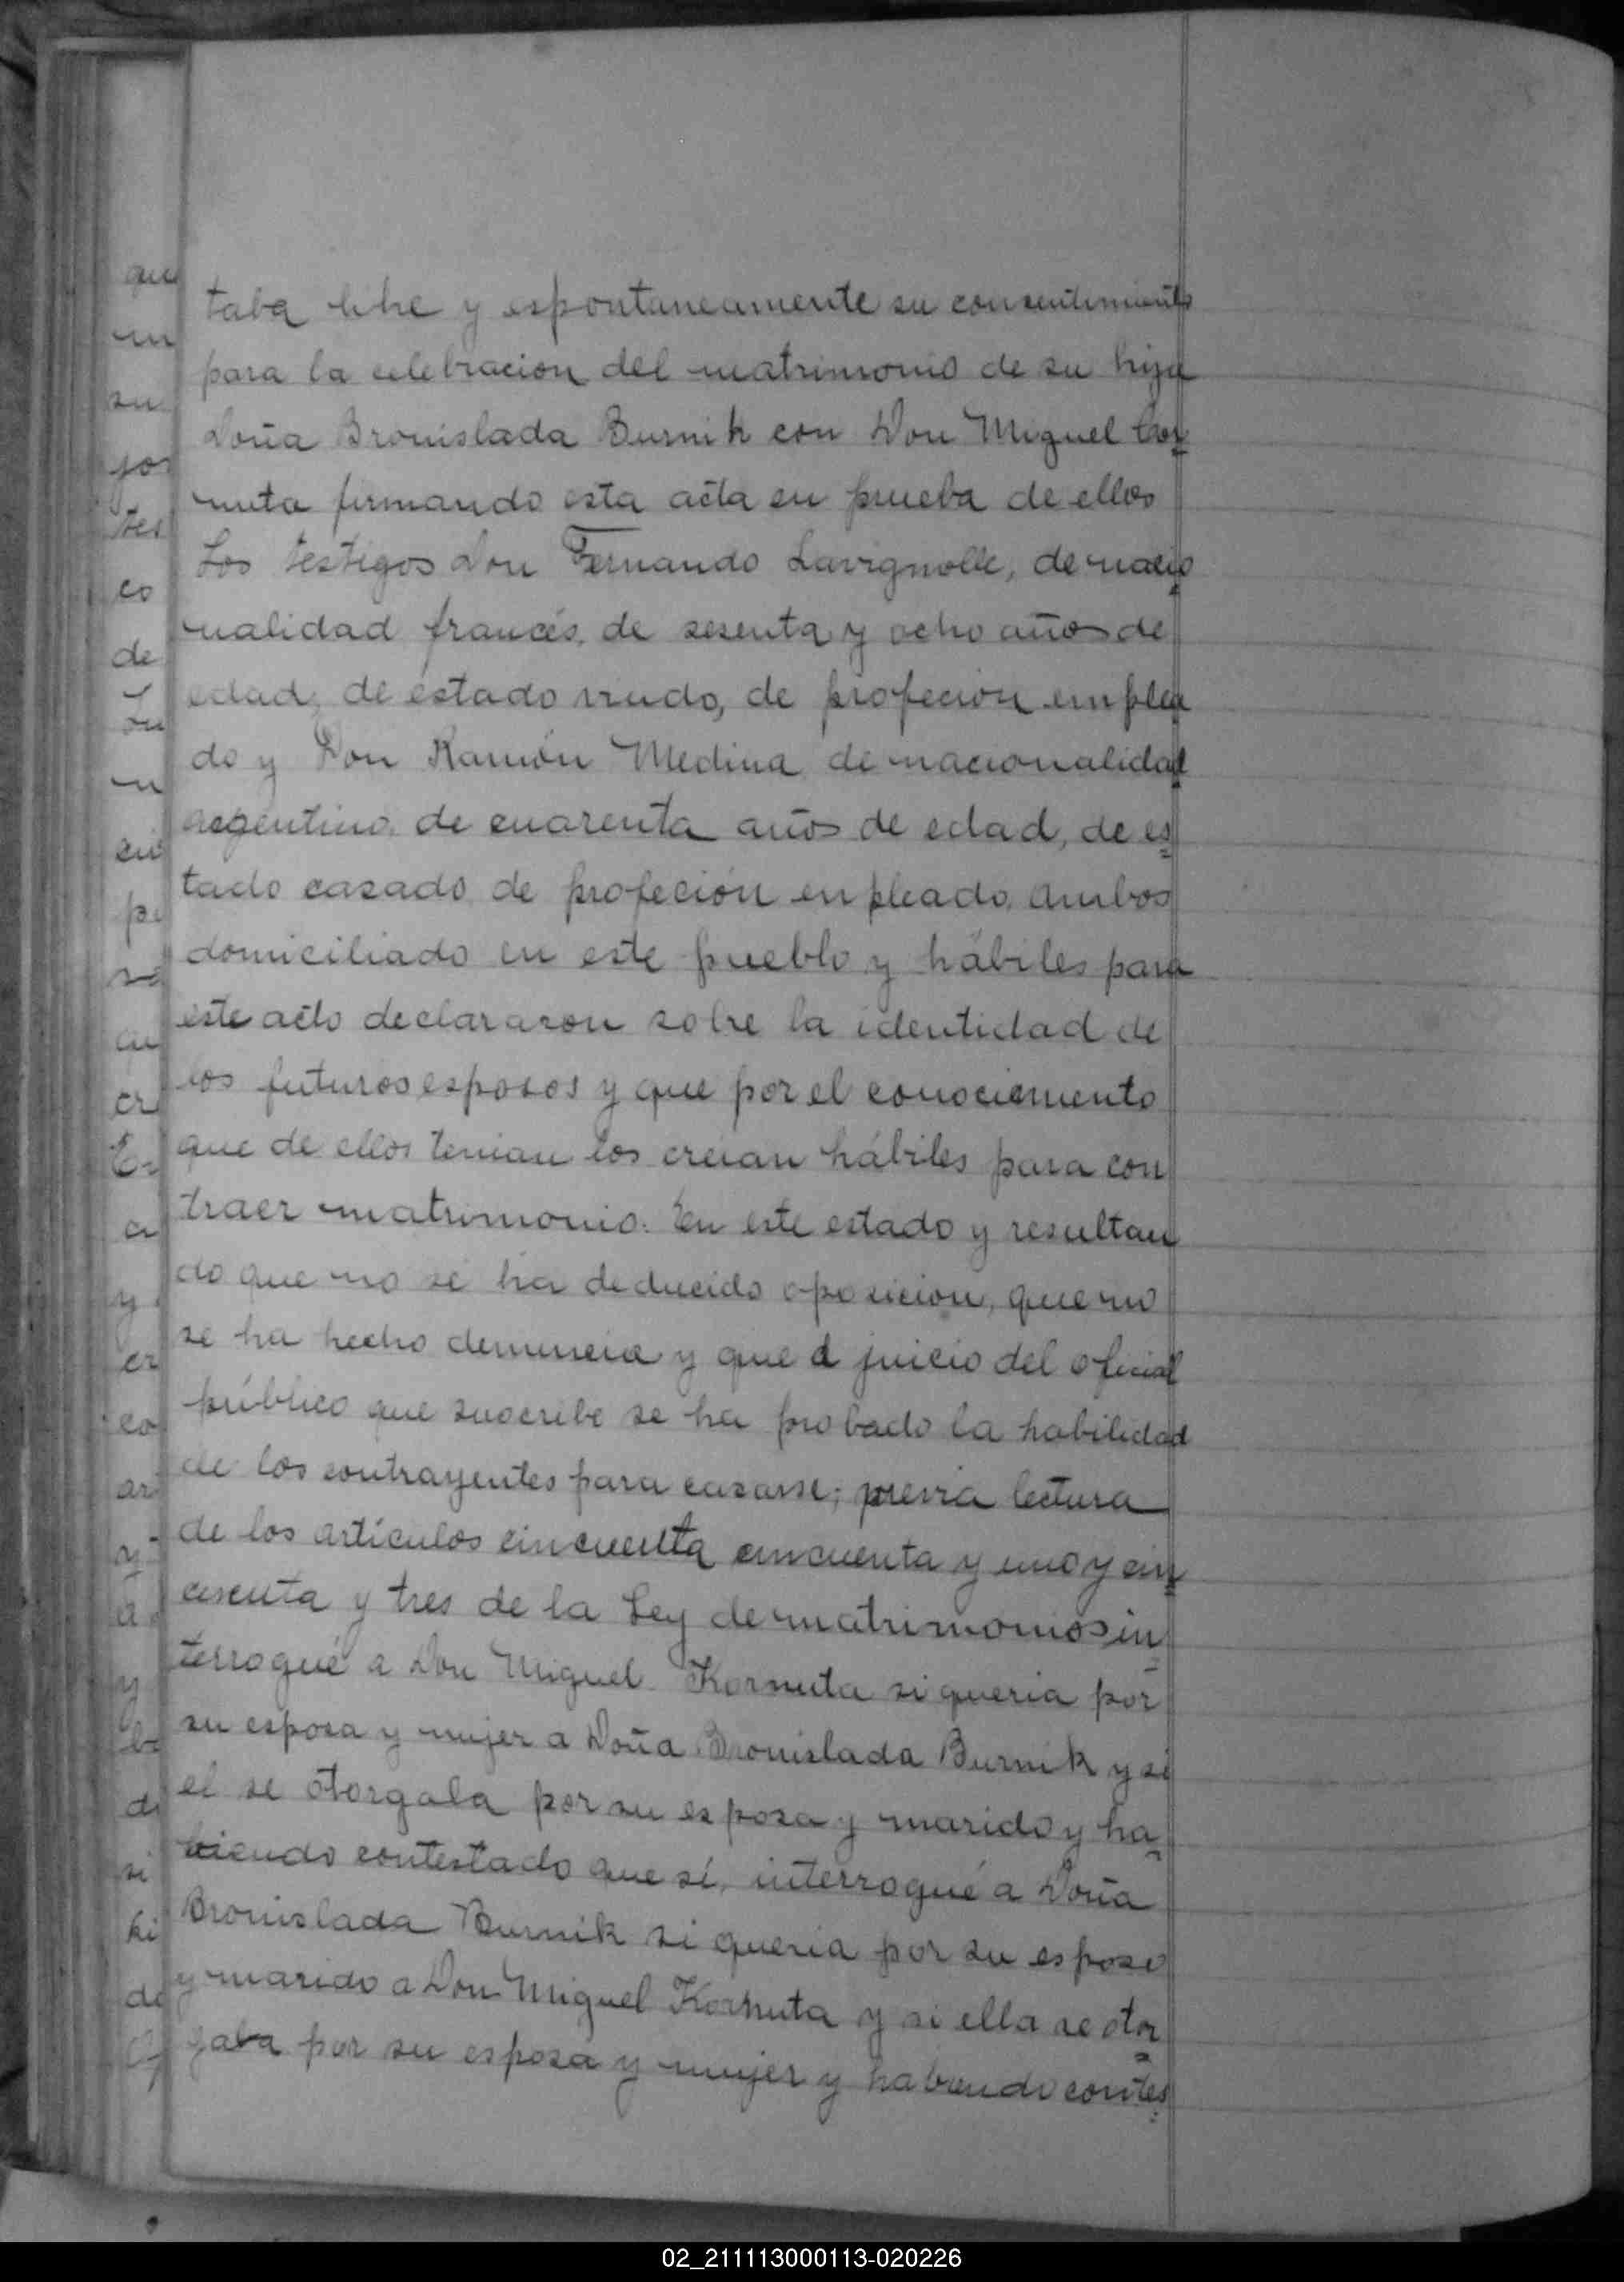 taba libre y espontaneamente su consentimiento
para la celebracion del matrimonio de su hija
Doña Bronislada Burnik con Don Miguel Cor
nuta firmando esta acta en prueba de ellos
Los testigos Don Fernando Lavignolle, de nacio
nalidad francés, de sesenta y ocho años de
edad, de estado viudo, de profecion emplea
do y Don Ramón Medina de nacionalidad
argentino, de cuarenta años de edad, de es
tado casado de profeción enpleado, ambos
domiciliado en este pueblo y hábiles para
este acto declararon sobre la identidad de
los futuros esposos y que por el conocimento
que de ellos tenian los creian hábiles para con
traer matrimonio. En este estado y resultan
do que no se ha deducido oposicion, que no
se ha hecho denuncia y que a juicio del oficial
público que suscribe se ha probado la habilidad
de los contrayentes para casarse; previa lectura
de los artículos cincuenta cincuenta y uno y cin
cuenta y tres de la Ley de matrimonios in
terrogué a Don Miguel Kornuta si queria por
su esposa y mujer a Doña Bronislada Burnik y si
el se otorgaba por su esposa y marido y ha
biendo contestado que sí, interrogué a Doña
Bronislada Burnik si queria por su esposo
y marido a Don Miguel Kornuta y si ella se otor
gaba por su esposa y mujer y habiendo contes
02_211113000113-020226